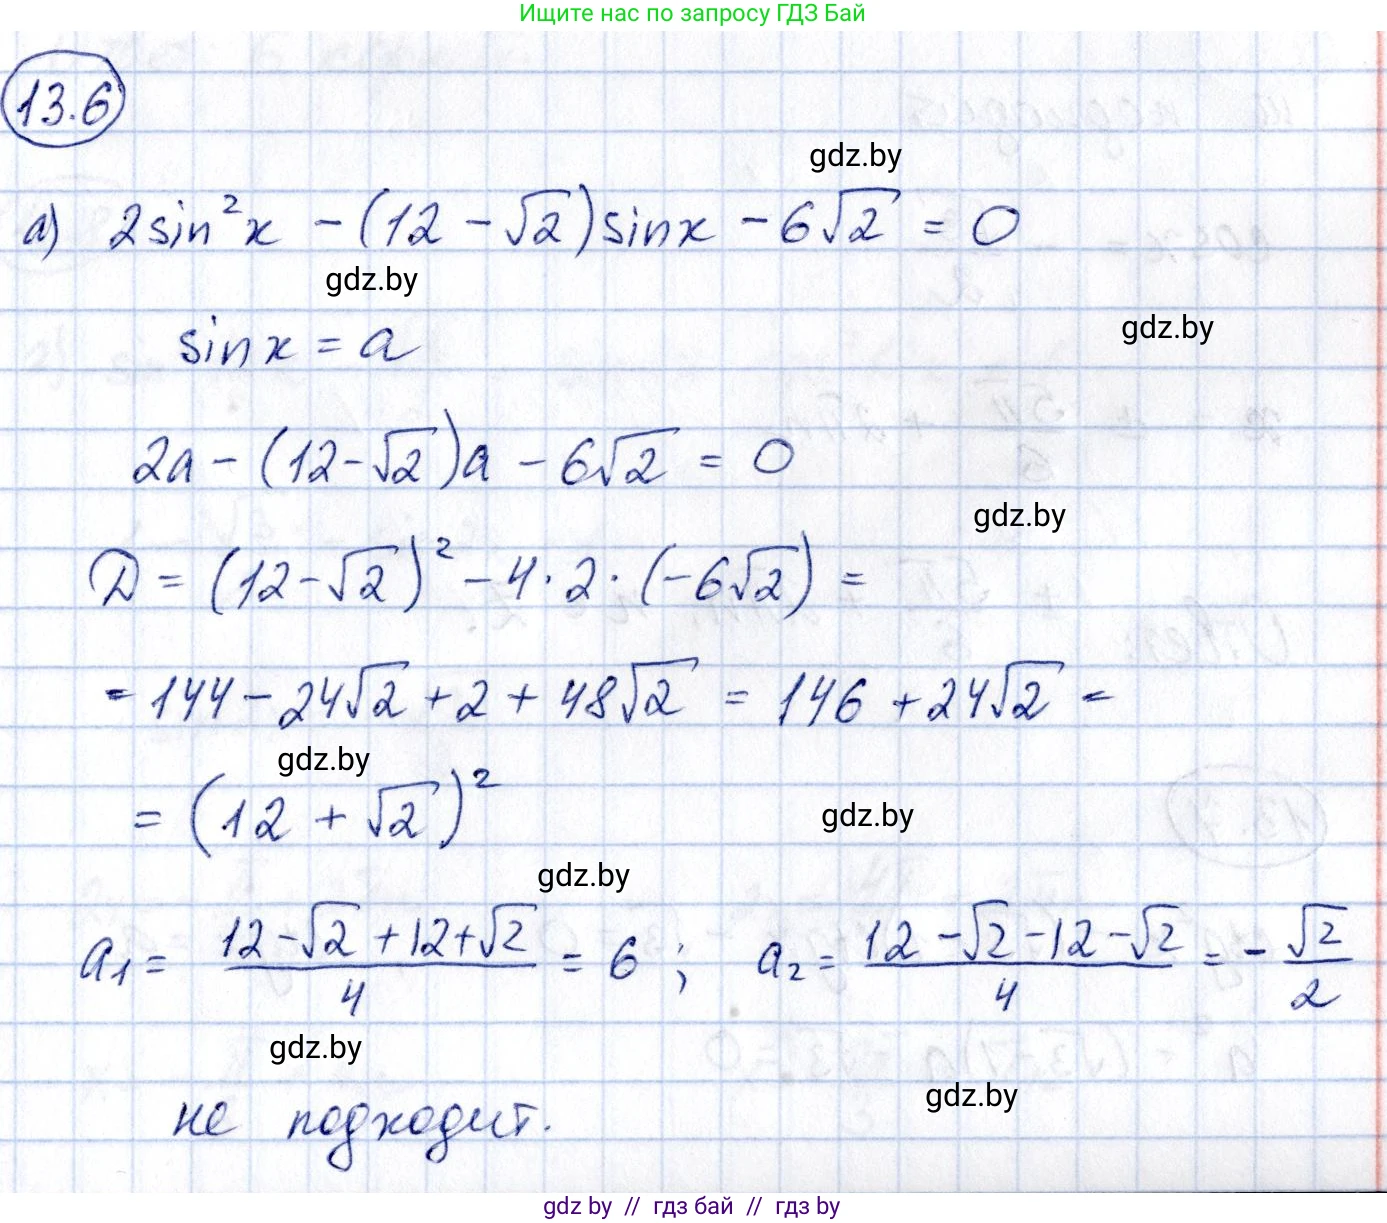 Ищите нас по запросу ГДЗ Бай
13.6
gdz.by
а) 2sin²x − (12 − √2)sinx − 6√2 = 0
gdz.by
gdz.by
sinx = a
2a − (12−√2)a − 6√2 = 0
gdz.by
D = (12−√2)² − 4·2·(−6√2) =
= 144 − 24√2 + 2 + 48√2 = 146 + 24√2 =
gdz.by
= (12 + √2)²
gdz.by
gdz.by
a₁ = (12−√2+12+√2)/4 = 6 ; a₂ = (12−√2−12−√2)/4 = − √2/2
gdz.by
gdz.by
не подходит.
gdz by // гдз бай // гдз by